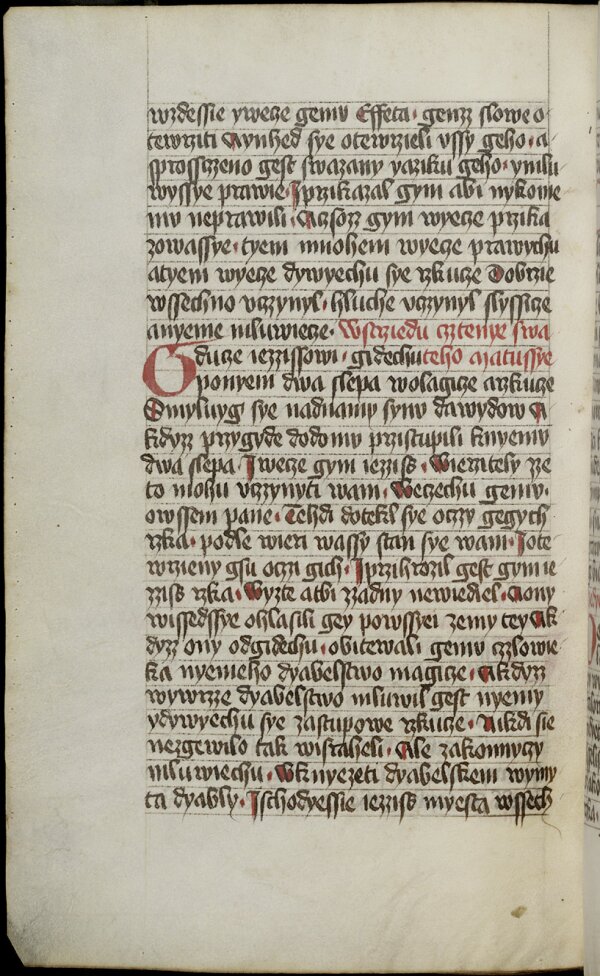 wzdessie ywecze gemv Effeta · genzz slowe o
tewrziti Aynhed sye otewrzieli vssy geho · a
sprosstzeno gest swazany yaziku geho · ymlu
wyssye prawie · I przikazal gym abi nykome
mv neprawili · Aczsozz gym wyecze przika
zowassye · tyem mnohem wyecze prawychu
atyem wyecze dywyechu sye rzkucze Dobrzie
wssechno vczynyl · hluche vczynyl slyssicze
anyeme mluwiecze · Wstrziedu cztenye swa
Gducze iezzissowi · gidechu teho Matussye
ponyem dwa slepa wolagicze arzkucze
Smyluyg sye nadnamy synv dawydow A
kdyzz przygyde dodomv przistupili knyemv
dwa slepa I wecze gym iezziss · Wierzitely ze
to mohu vczynyti wam · Weczechu gemv ·
owssem pane · Tehdi dotekl sye oczzy gegych
rzka · podle wieri wassy stan sye wam · I ote
wrzieny gsu oczi gich · I przihrozil gest gym ie
zziss rzka · Wyzte atbi zzadny newiediel · Aony
wissedssye ohlasili gey powssyei zemy tey Ak
dyzz ony odgidechu · obitewali gemv czlowie
ka nyemeho dyabelstwo magicze · Akdyzz
wywrzze dyabelstwo mluwil gest nyemy
ydywyechu sye zastupowe rzkucze · Nikdi sie
nezgewilo tak wisraheli · Ale zakonnyczy
mluwiechu · Wknyezeti dyabelskem wymy
ta dyably · I schodyessie iezziss myesta wssech